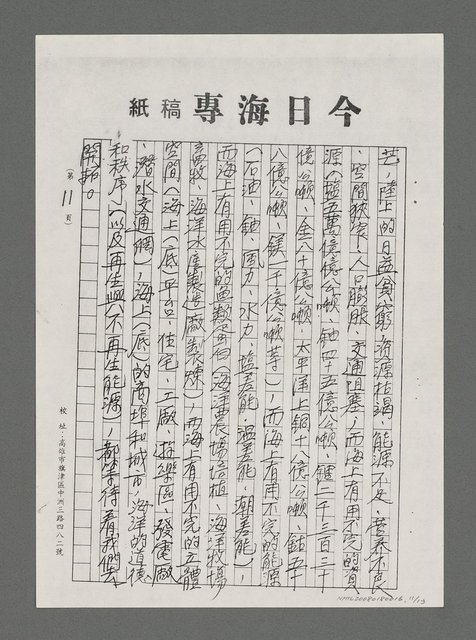 今日海專稿紙
芒，陸上的日益貧窮，資源枯竭、能源不足、營養不良
、空間狹窄、人口膨脹、交通阻塞，而海上有用不完的資
源（鹽五萬億億公噸、鈾四十五億公噸、錳二千三百三十
億公噸、金八十億公噸、太平洋上銅十八億公噸、鈷五十
八億公噸、鎂一千億公噸等），而海上有用不完的能源
（石油、鈾、風力、水力、鹽差能、溫差能、潮差能），
而海上有用不完的無數蛋白（海洋農場培植、海洋牧場
畜牧、海洋水產製造廠製煉），而海上有用不完的立體
空間（海上（底）平台、住宅、工廠、遊樂區、發電廠
、潛水交通網，海上（底）的商埠和城市，海洋的道德
和秩序）（以及再生與（不再生能源），都等待着我們去
開拓。
（第11頁）
校址：高雄市旗津區中洲三路四八二號
NMTL20080180016 11/19